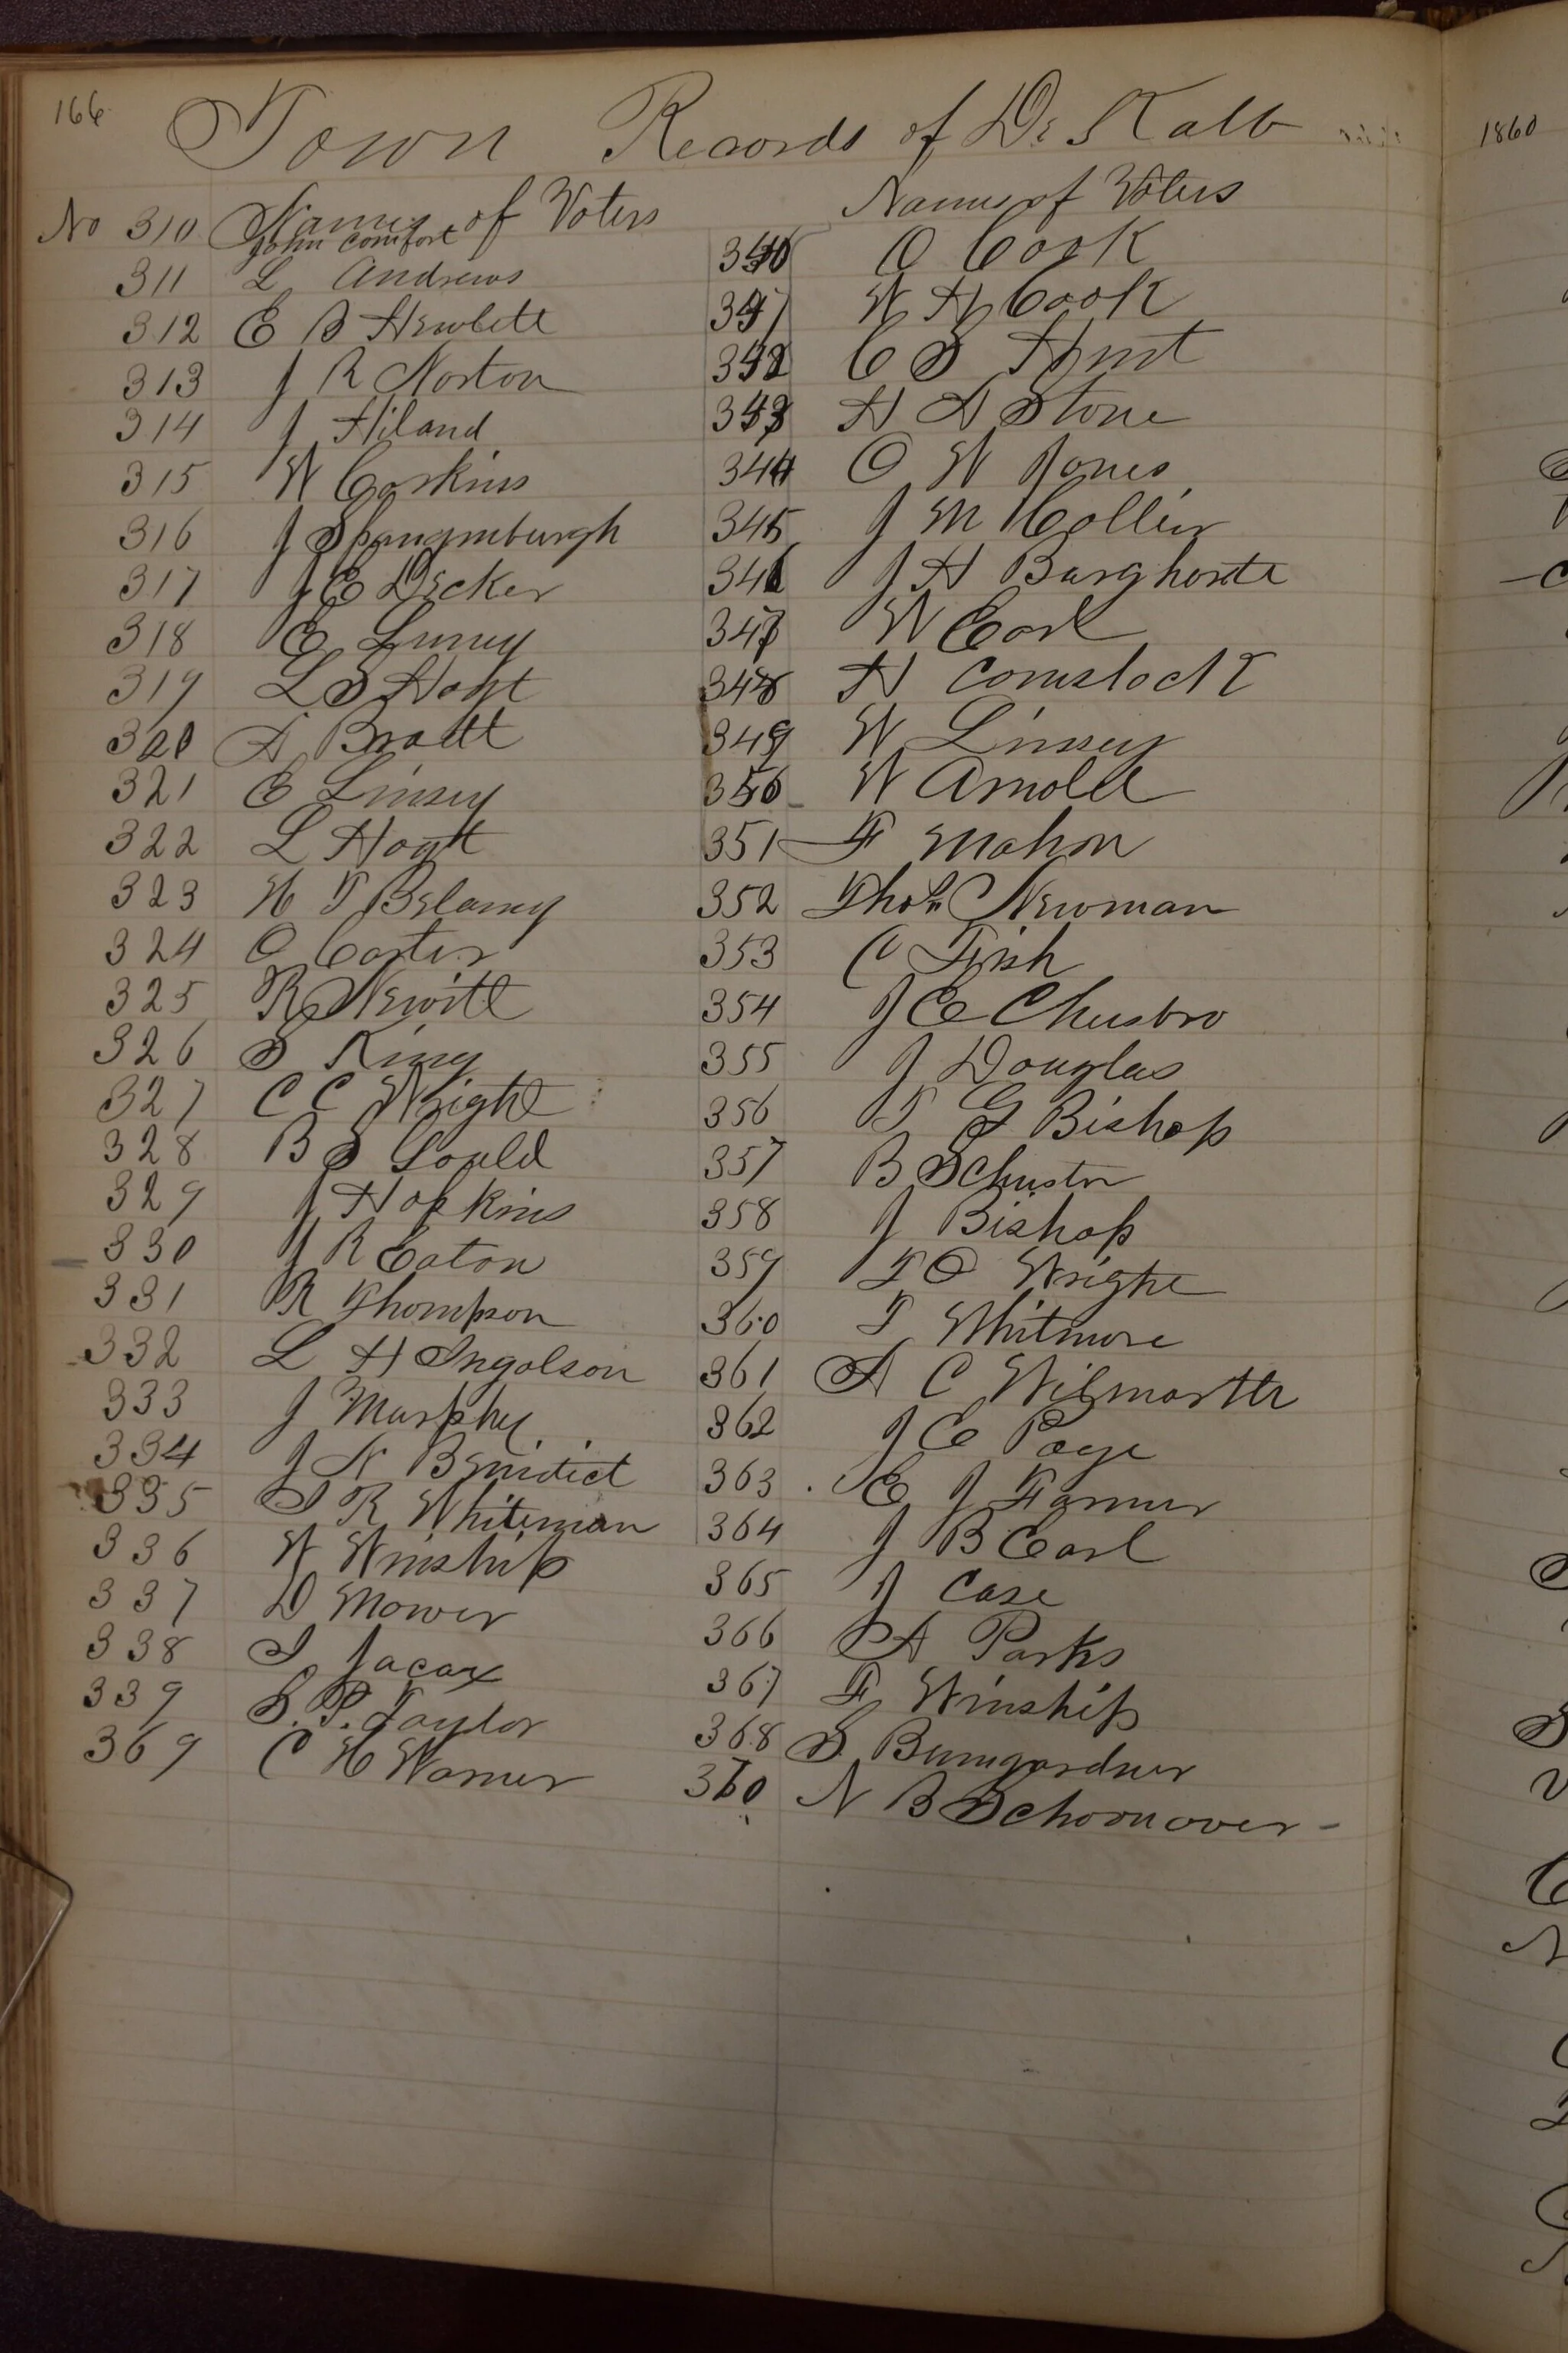 166
Town Records of De Kalb
No 310 Names of Voters
John Comfort
311 L Andrews
312 E S Hewlett
313 J R Norton
314 J Hiland
315 W Coskins
316 J Spangenburgh
317 J E Decker
318 E
319 L S Hoyt
320 A Bratt
321 E Linsey
322 L Hoyt
323 H T Belamy
324 O Carter
325 R Newitt
326 S King
327 C C Wright
328 B S Gould
329 J Hopkins
330 J R Eaton
331 R Thompson
332 L H Ingolson
333 J Murphy
334 J N Benidict
335 S R Whiteman
336 W Winship
337 D Mower
338 J Jacax
339 S. P. Taylor
369 C H Warner
Names of Voters
340 O Cook
341 W H Cook
342 C S Hunt
343 H A Stone
344 O W Jones
345 J M Collier
346 J H Burghorte
347 W Earl
348 H Comstock
349 W Linsey
350 W Arnold
351 F Mahon
352 Thos Newman
353 C Fish
354 J E Chusbro
355 J Douglas
356 T G Bishop
357 B Schuster
358 J Bishop
359 T O Wright
360 T Whitmore
361 A C Wilmarth
362 J E Page
363 E J Farmer
364 J B Earl
365 J Case
366 A Parks
367 F Winship
368 S Bumgardner
370 N B Schoonover
1860